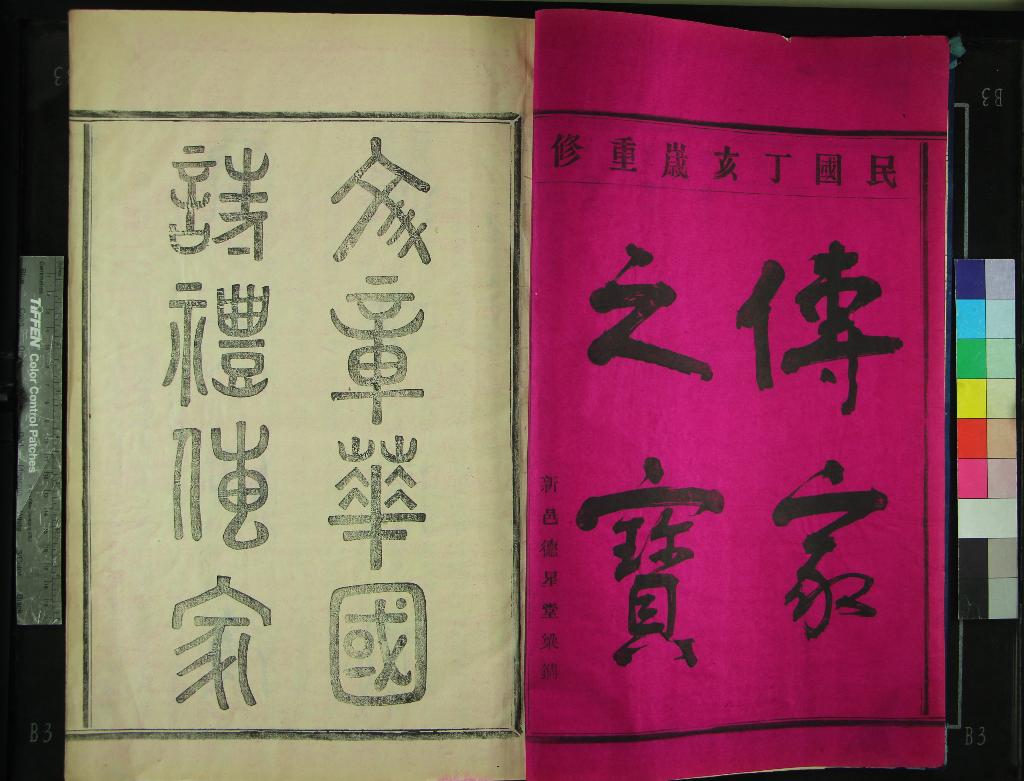 民國丁亥歲重修
傳家
之寶
新邑德星堂梁鐫
文章華國
詩禮傳家
TIFFEN Color Control Patches
B3
B3
B3
B3